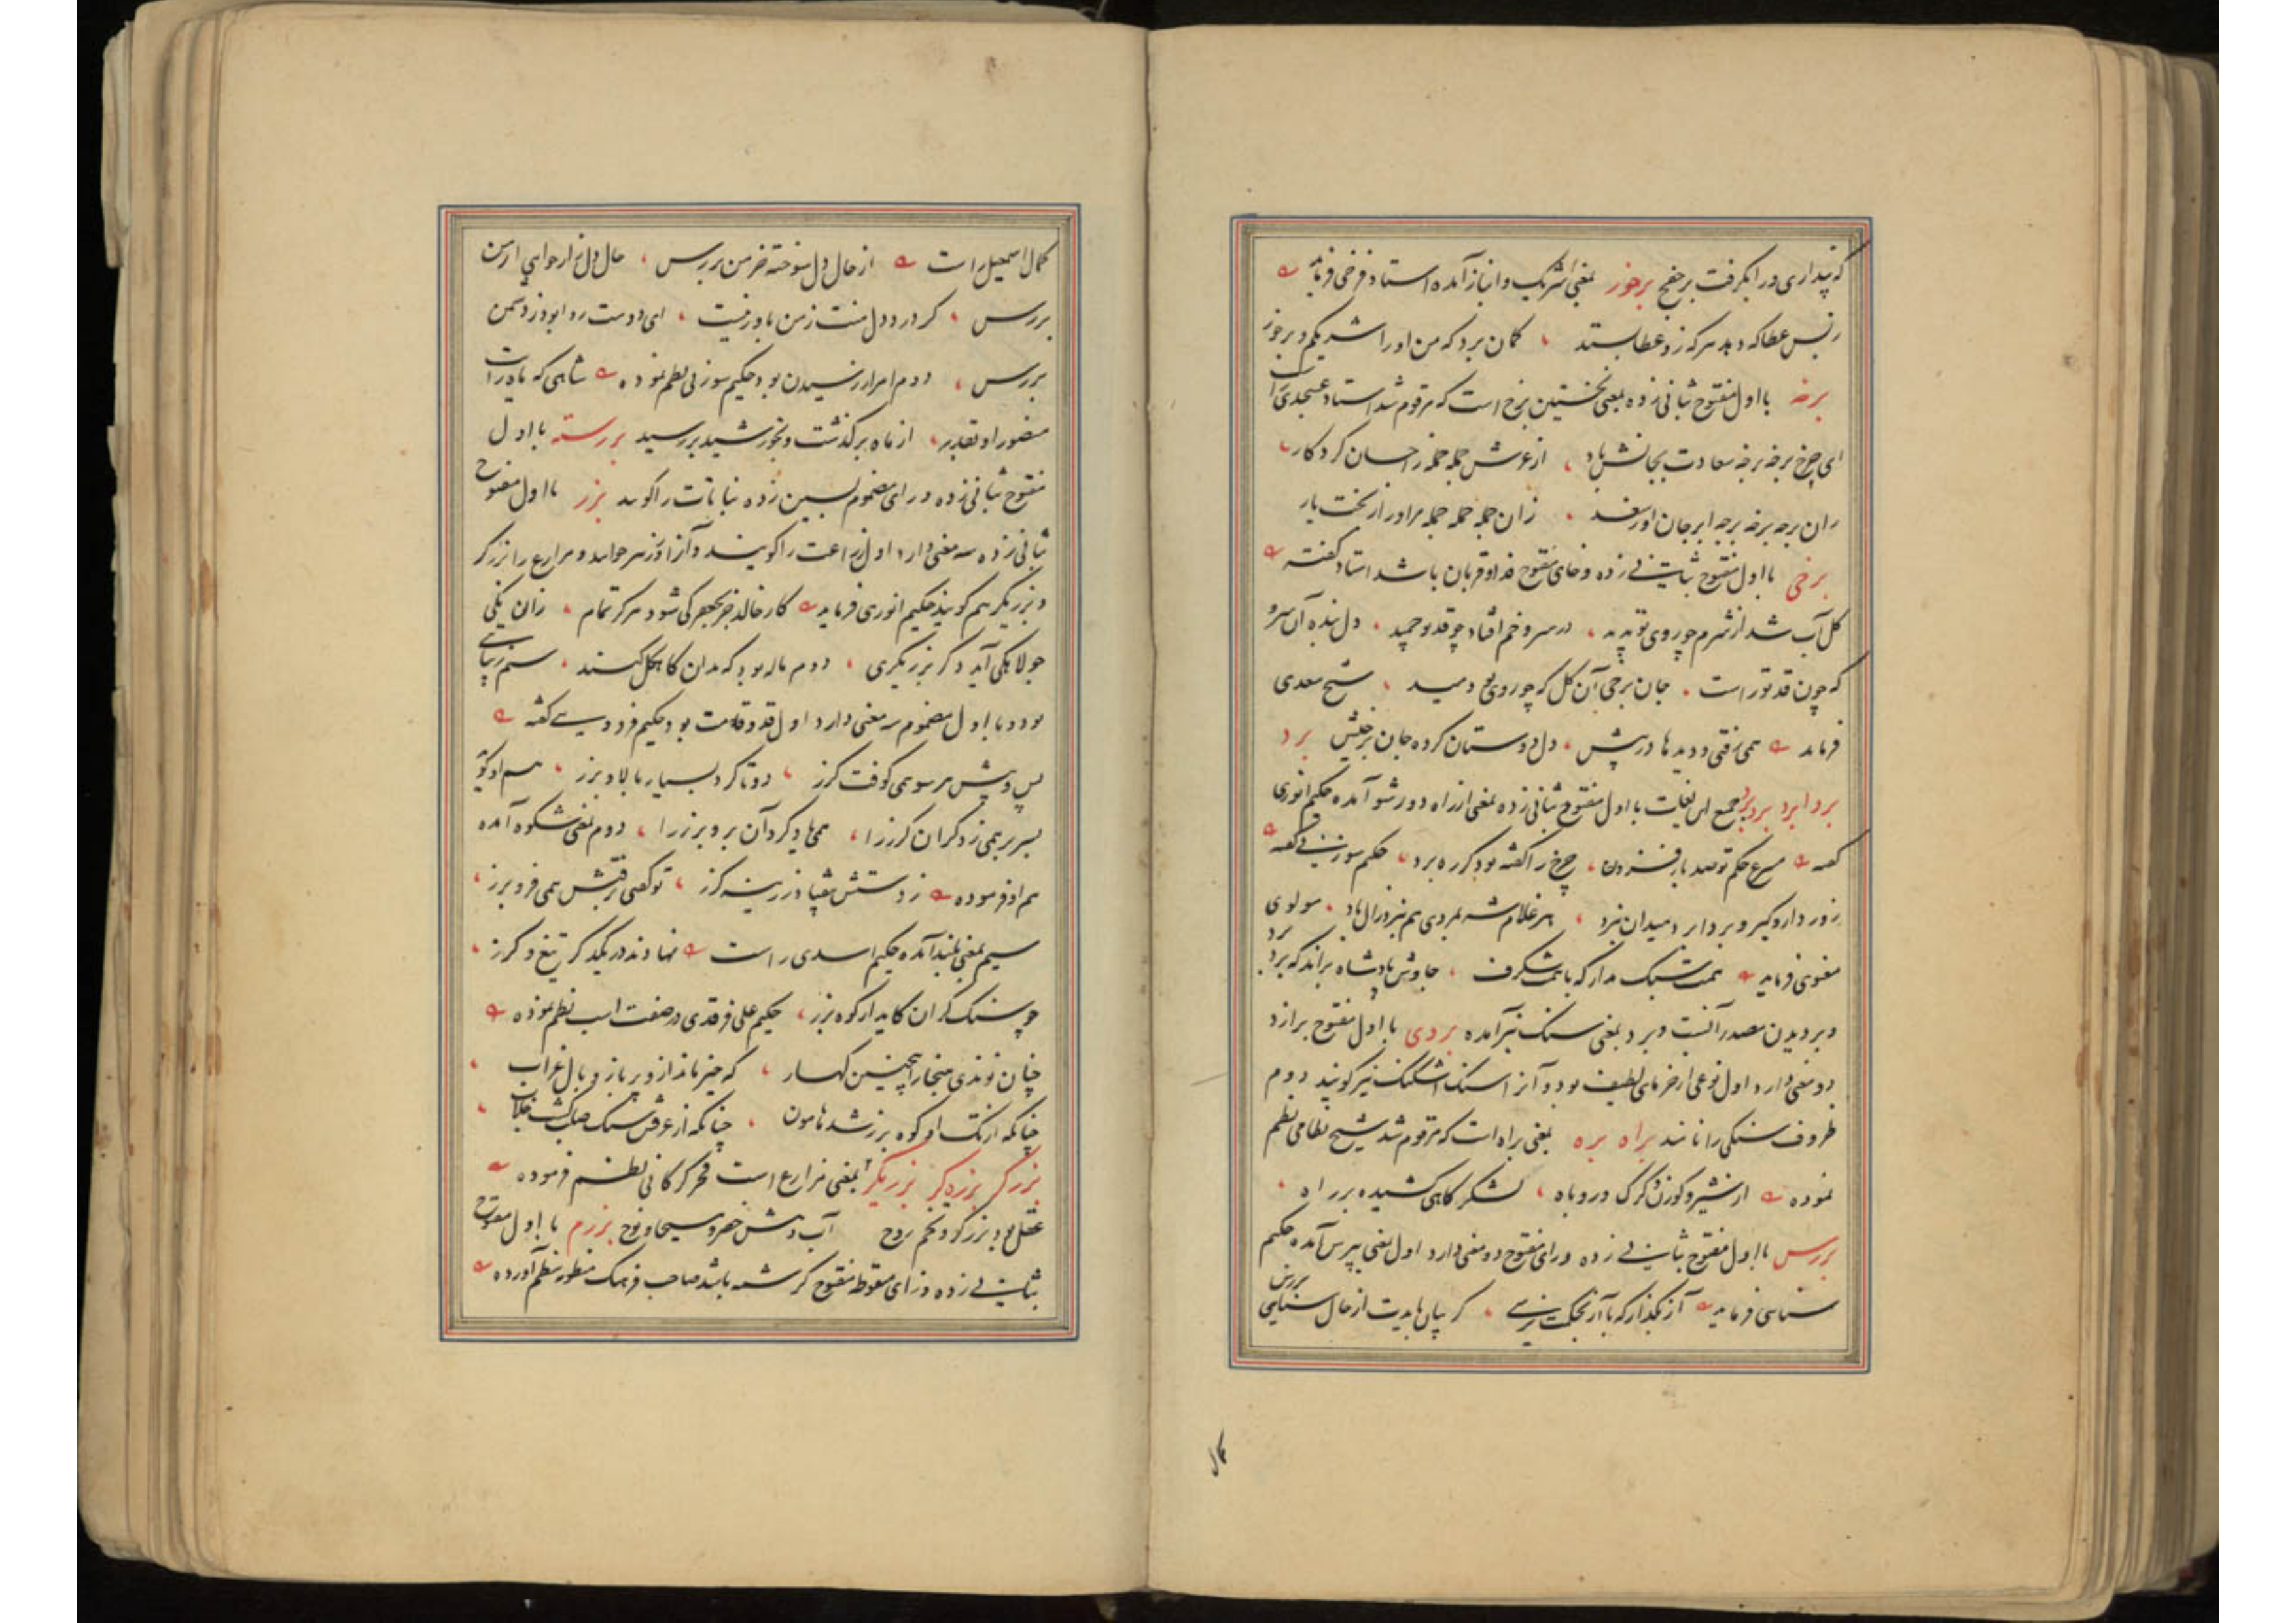 که پنداری درابگرفت برجفج برخور بمعنی شریک وانباز آمده استاد فرخی فرماید
ز بس عطا که دهد هر که زو عطا بستد گمان برد که من او را شریکم و برخور
برخه با اول مفتوح بثانی زده بمعنی نخستین برخ است که مرقوم شد استاد عسجدی راست
ای چرخ برخه برخه سعادت بجانش باد از عرش جمله جمله ز احسان کردکار
زان برخه برخه برخه ابر جان او زان جمله جمله جمله مر او را ز بخت یار
برخی با اول مفتوح بثانی زده و خای مفتوح فدا و قربان باشد استاد گفته
گل آب شد از شرم چو روی تو بدید در سرو خم افتاد چو قد تو چمید دل بنده آن سرو
که چون قد تو راست جان برخی آن گل که چو روی تو دمید شیخ سعدی
فرماید همی رفتی و دیدها در پیش دل دوستان کرده جان برخیش برد
برد ابرد بردبرد جمع این لغات با اول مفتوح بثانی زده بمعنی از راه دور شو آمده حکیم انوری
گفته مسرع حکم تو صد بار فزون چرخ را گفته بود کز ره برد حکیم سوزنی گفته
روز دار و گیر و بردابرد میدان نبرد هر غلام شه بمردی هم نبرد زال باد مولوی
معنوی فرماید همت سبک مدار که با همت شگرف چاوش پادشاه براند که برد برد
و بردیدن مصدر آنست و برد بمعنی سنک نیز آمده بردی با اول مفتوح برازد
دو معنی دارد اول نوعی از خرمای لطیف بود و آنرا سنک اشکنک نیز گویند دوم
ظروف سنکی را نامند براه بره بمعنی براه است که مرقوم شد شیخ نظامی نظم
نموده از شیر و گوزن و گرگ و روباه لشکرگاهی کشیده بر راه
بررس با اول مفتوح بثانی زده و رای مفتوح دو معنی دارد اول بمعنی بپرس آمده حکیم
سنائی فرماید آز بگذار که با آز بحکمت نرسی گر بیان بایدت از حال سنائی بررس
کمال
کمال اسمعیل راست از حال دل سوخته خرمن بررس حال دل زار خواهی از من
بررس گر درد دل منت ز من باور نیست ای دوست روا بود ز دشمن
بررس دوم امر از رسیدن بود حکیم سوزنی نظم نموده شاهی که یافت رایت
منصور او بقدر از ماه برگذشت و بخورشید بررسید بررسته با اول
مفتوح بثانی زده و رای مضموم بسین زده نباتات را گویند برز با اول مفتوح
بثانی زده سه معنی دارد اول زراعت را گویند و آنرا ورز نیز خوانند و مزارع را برزگر
و برزیگر هم گویند حکیم انوری فرماید کار خالد جز بجعفر کی شود هرگز تمام زان یکی
جولاهگی آید دگر برزیگری دوم ماله بود که بدان کاهگل کنند سیم زیبائی
بود و با اول مضموم سه معنی دارد اول قد و قامت بود حکیم فردوسی گفته
پس و پیش هر سو همی کوفت گرز دوتا کرد بسیار بالا و برز هم او گوید
بسر بر همی زد گران گرز را همی یاد کرد آن بر و برز را دوم بمعنی شکوه آمده
هم او فرموده ز دستش بیفتاد زرینه گرز تو گفتی برفتش همی فر و برز
سیم بمعنی بلند آمده حکیم اسدی راست نهادند در یکدگر تیغ و گرز
چو سنک گران کاید از کوه برز حکیم علی فرقدی در صفت اسب نظم نموده
چنان نوندی هنجار همچنین کهسار که خیره ماند ازو پر باز و بال غراب
چنانکه از تک او کوه برز شد هامون چنانکه از عرقش سنک گشت خلاب
برزگر برزه گر برزیگر بمعنی مزارع است فخر گرگانی نظم فرموده
عقل بود برزگر و تخم روح آب دمش خضر و مسیحا و نوح برزم با اول مفتوح
بثانی زده و زای منقوط مفتوح کرشمه باشد صاحب فرهنگ منظومه نظم آورده